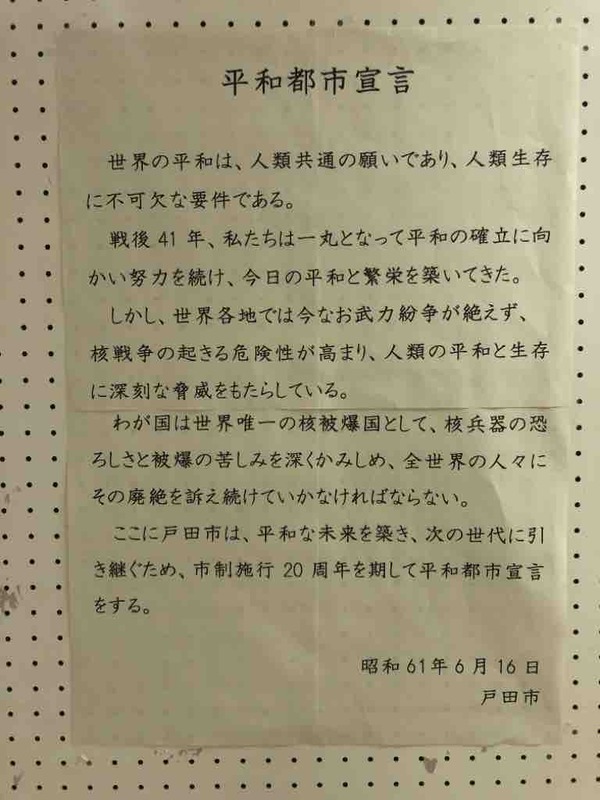 平和都市宣言
世界の平和は、人類共通の願いであり、人類生存
に不可欠な要件である。
戦後 41 年、私たちは一丸となって平和の確立に向
かい努力を続け、今日の平和と繁栄を築いてきた。
しかし、世界各地では今なお武力紛争が絶えず、
核戦争の起きる危険性が高まり、人類の平和と生存
に深刻な脅威をもたらしている。
わが国は世界唯一の核被爆国として、核兵器の恐
ろしさと被爆の苦しみを深くかみしめ、全世界の人々に
その廃絶を訴え続けていかなければならない。
ここに戸田市は、平和な未来を築き、次の世代に引
き継ぐため、市制施行 20 周年を期して平和都市宣言
をする。
昭和 61年 6 月 16 日
戸田市